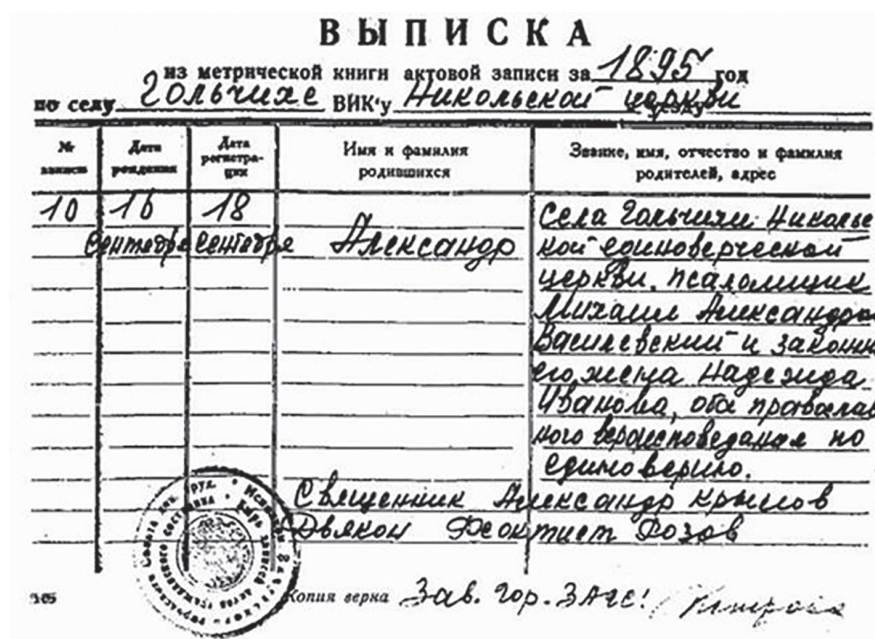 ВЫПИСКА
из метрической книги актовой записи за 1895 год
по селу Гольчихе ВИК'у Никольской церкви
№ записи Дата рождения Дата регистрации Имя и фамилия родившихся Звание, имя, отчество и фамилия родителей, адрес
10 16 18 Села Гольчихи Никольс
Сентября Сентября Александр кой единоверческой
церкви, псаломщик
Михаил Александров
Василевский и законн
его жена Надежда
Иванова, оба православ
ного вероисповедания по
единоверию.
Священник Александр Крылов
Дьякон Феоктист Розов
Копия верна Зав. Гор. ЗАГС!